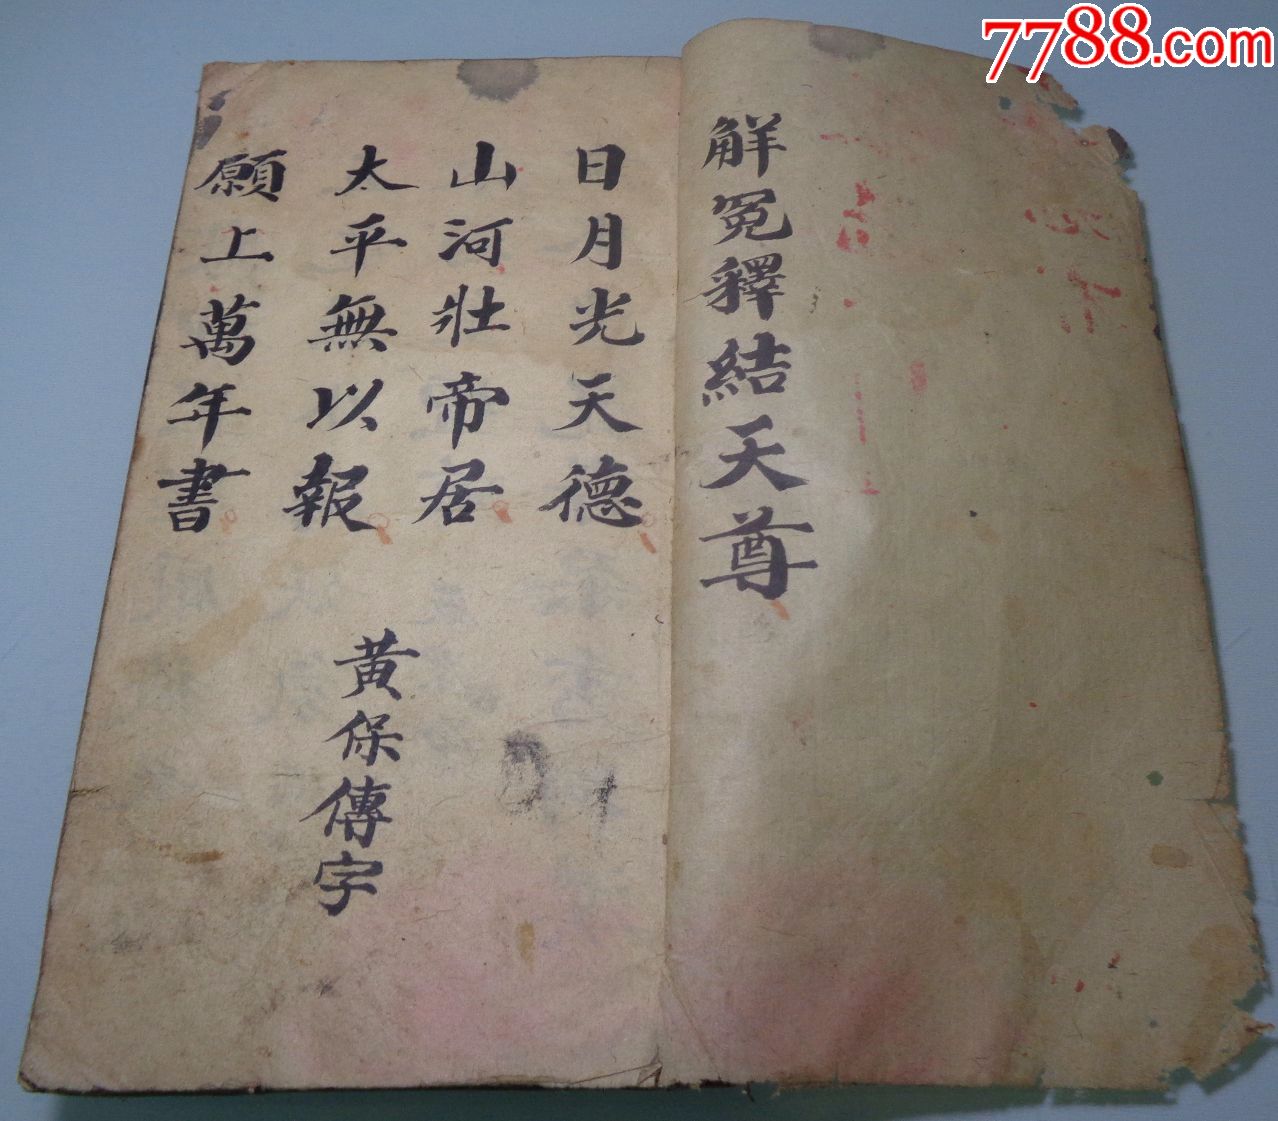 7788.com
解冤釋結天尊
日月光天德
山河壯帝居
太平無以報
願上萬年書
黃保傳字